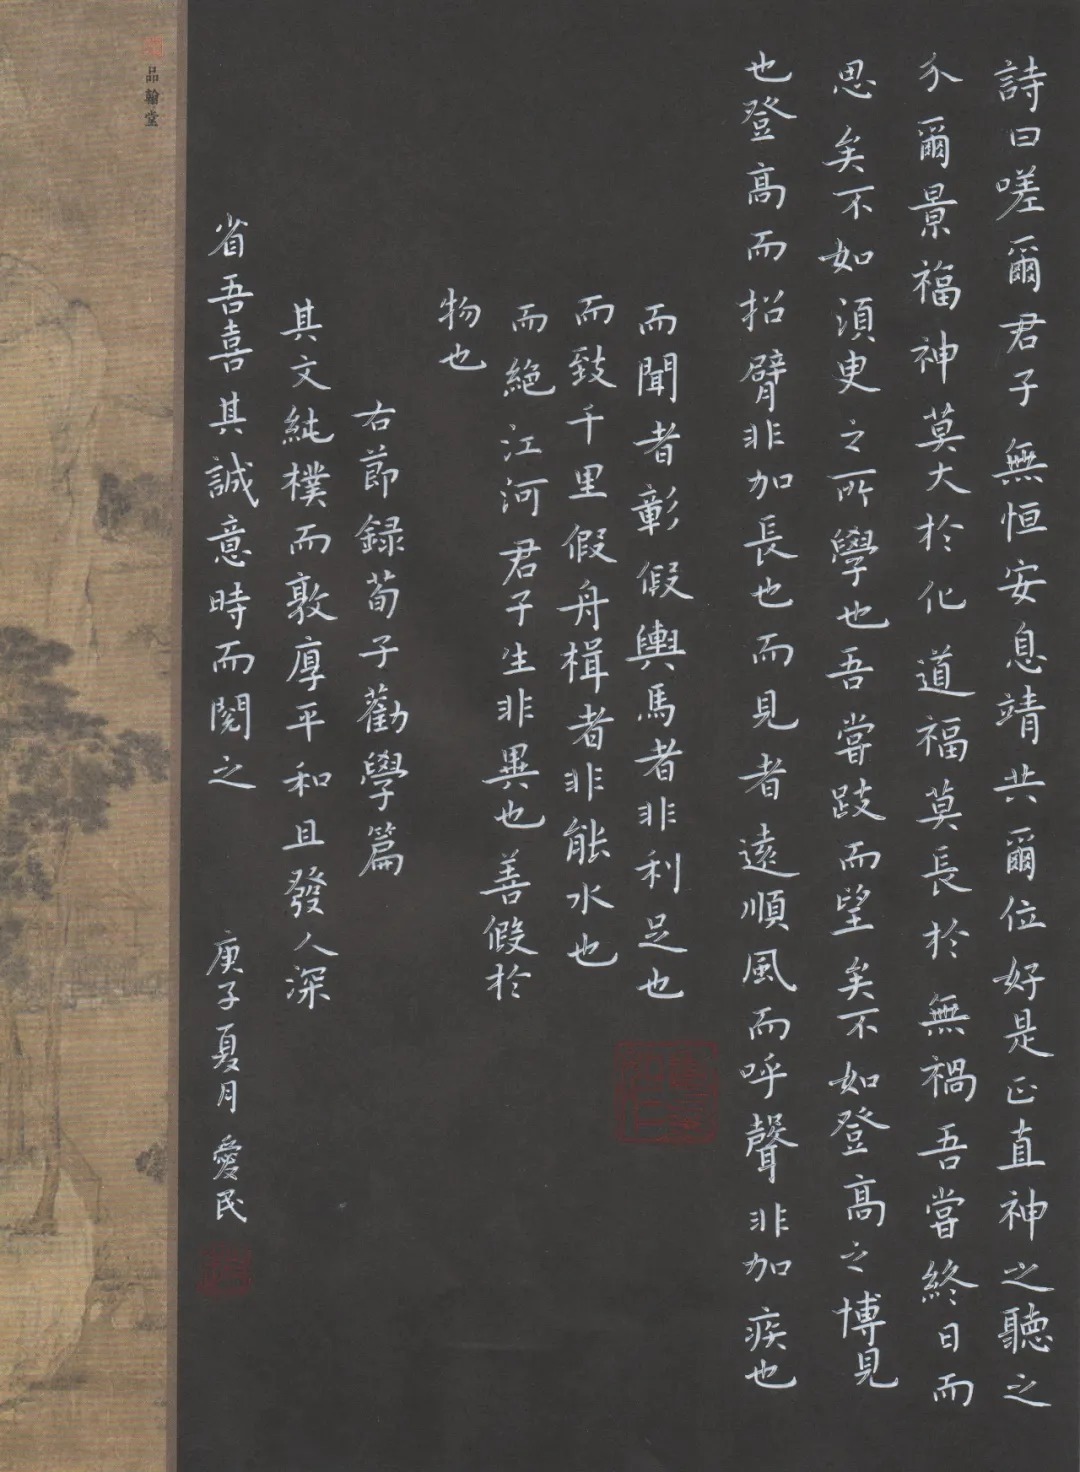 詩曰嗟爾君子無恒安息靖共爾位好是正直神之聽之
介爾景福神莫大於化道福莫長於無禍吾嘗終日而
思矣不如須臾之所學也吾嘗跂而望矣不如登高之博見
也登高而招臂非加長也而見者遠順風而呼聲非加疾也
而聞者彰假輿馬者非利足也
而致千里假舟楫者非能水也
而絶江河君子生非異也善假於
物也
右節録荀子勸學篇
其文純樸而敦厚平和且發人深
省吾喜其誠意時而閱之 庚子夏月 愛民
品翰堂